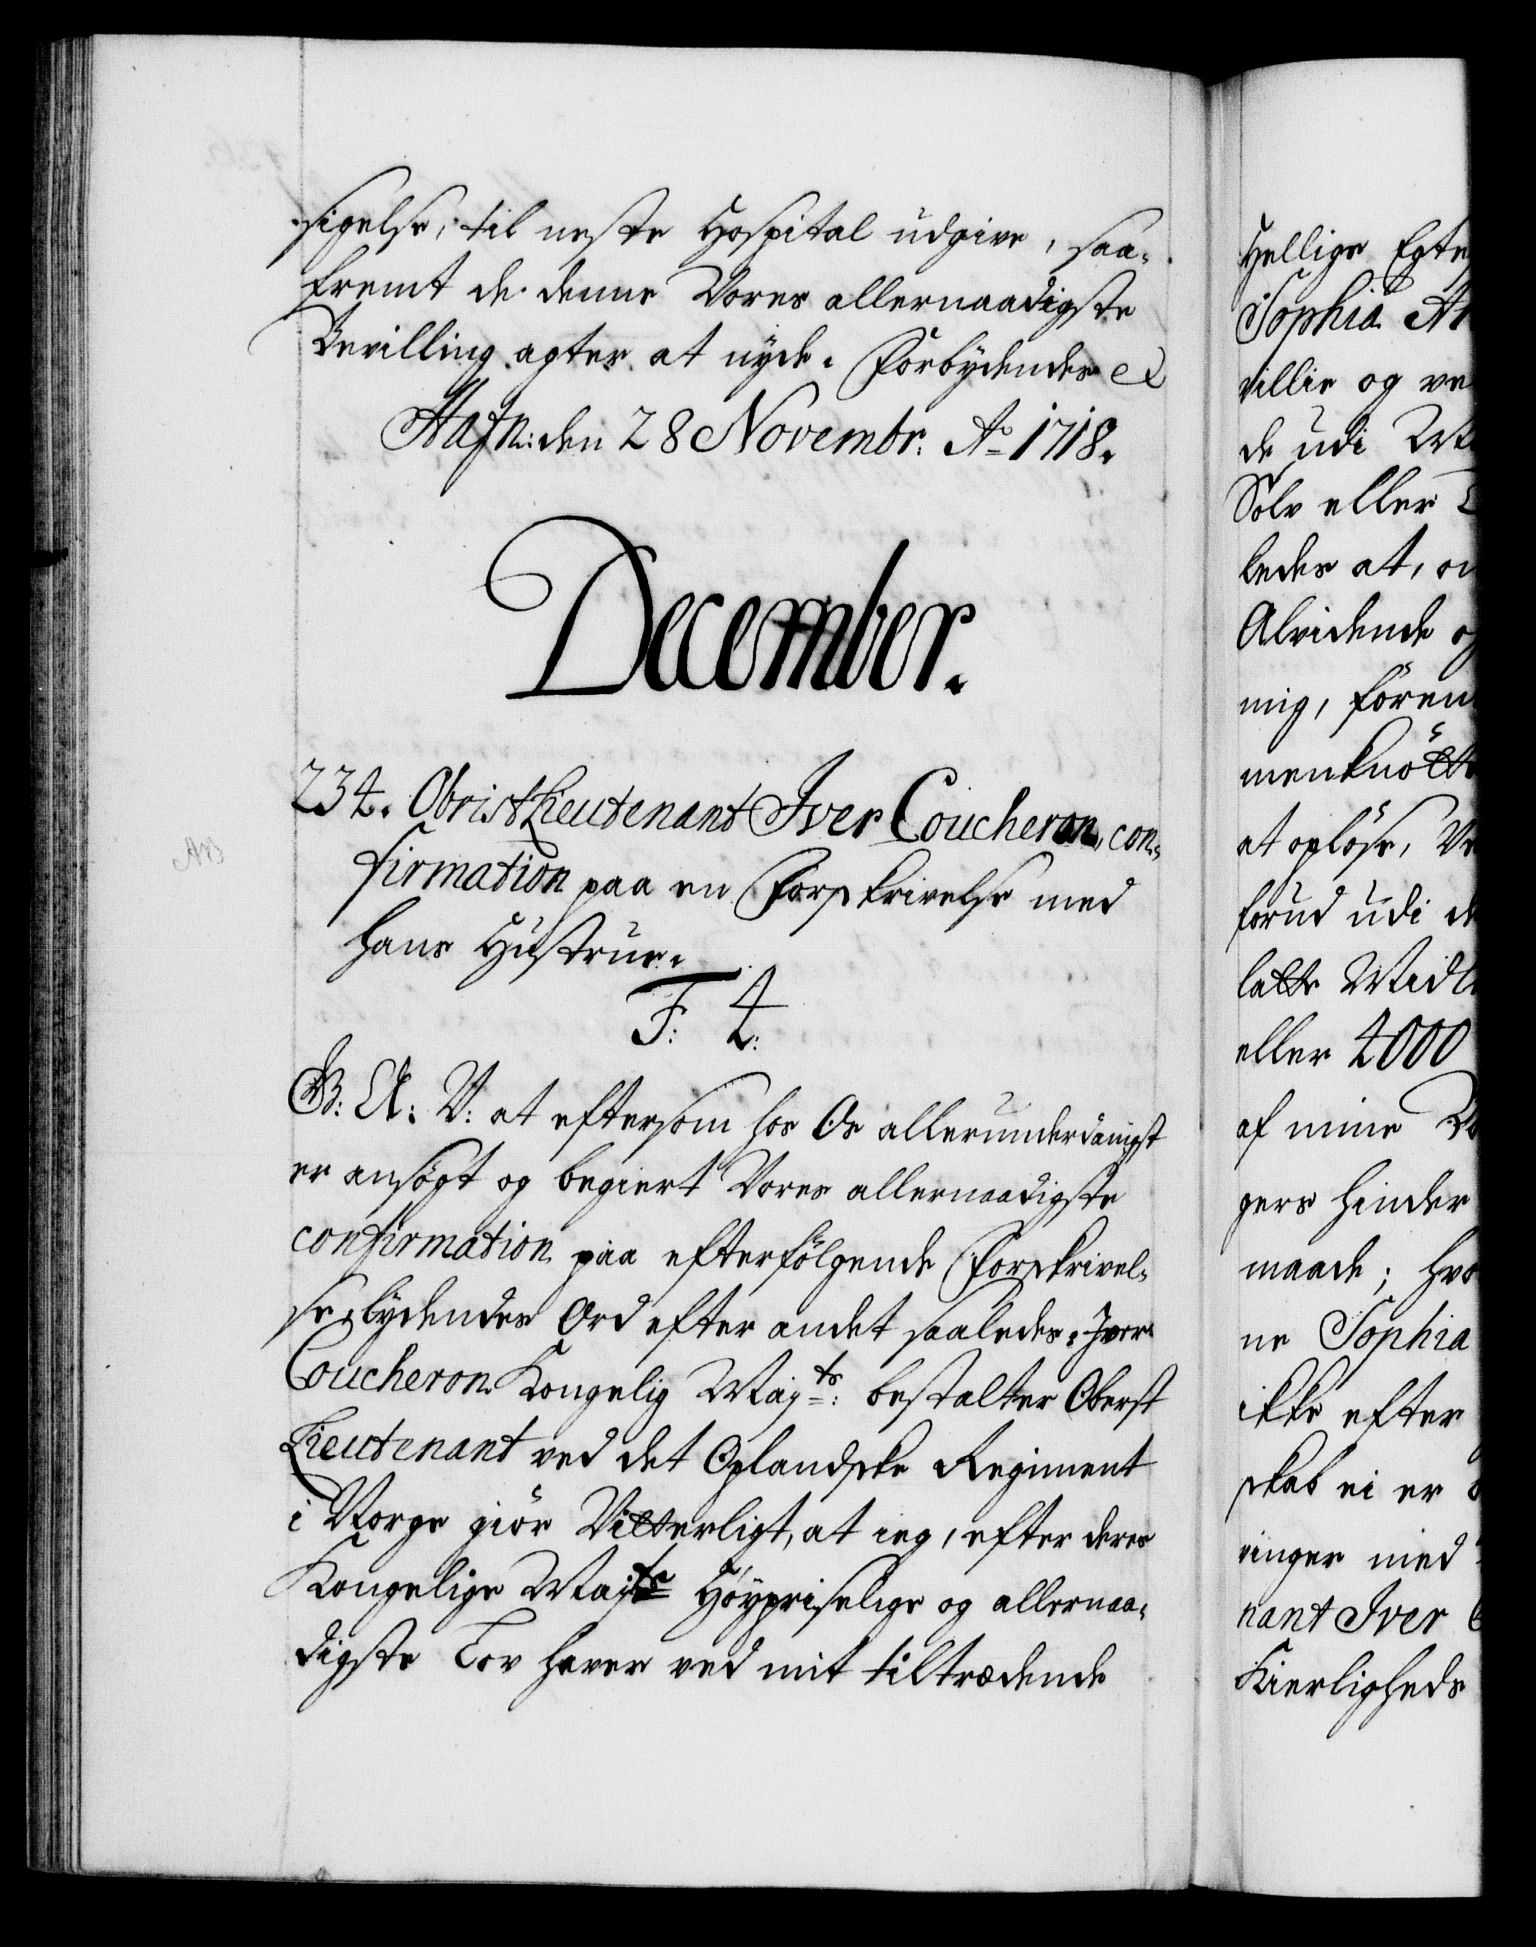 sigelse, til neste Hospital udgive, saa-
fremt de denne Vores allernaadigste
Bevilling agter at nyde. Forbydendes &
Hafn: den 28 Novembr: Ao 1718.
December.
234. ObristLieutenant Iver Coucheron, con-
firmation paa en Forskrivelse med
hans Hustrue.
F: 4:
G: A: V: at eftersom hos Os allerunderdanigst
er ansøgt og begiert Vores allernaadigste
confirmation paa efterfölgende Forskrivel-
se, lydendes Ord efter andet saaledes: Iver
Coucheron Kongelig Mayts: bestalter Oberst
Lieutenant ved det Oplandske Regiment
i Norge giör Vitterligt, at ieg, efter deres
Kongelige Mayts Höypriselige og allernaa-
digste Lov haver ved mit tiltrædende
Hellige Egte
Sophia
villie og
de udi
Sölv eller
ledes at,
Alvidende
mig, foren
at oplöse,
forud udi
ladte Midl
eller 4000
af mine
gers hinder
maade; hvo
ne Sophia
ikke efter
skab ei er
ringer med
nant Iver
Kierligheds